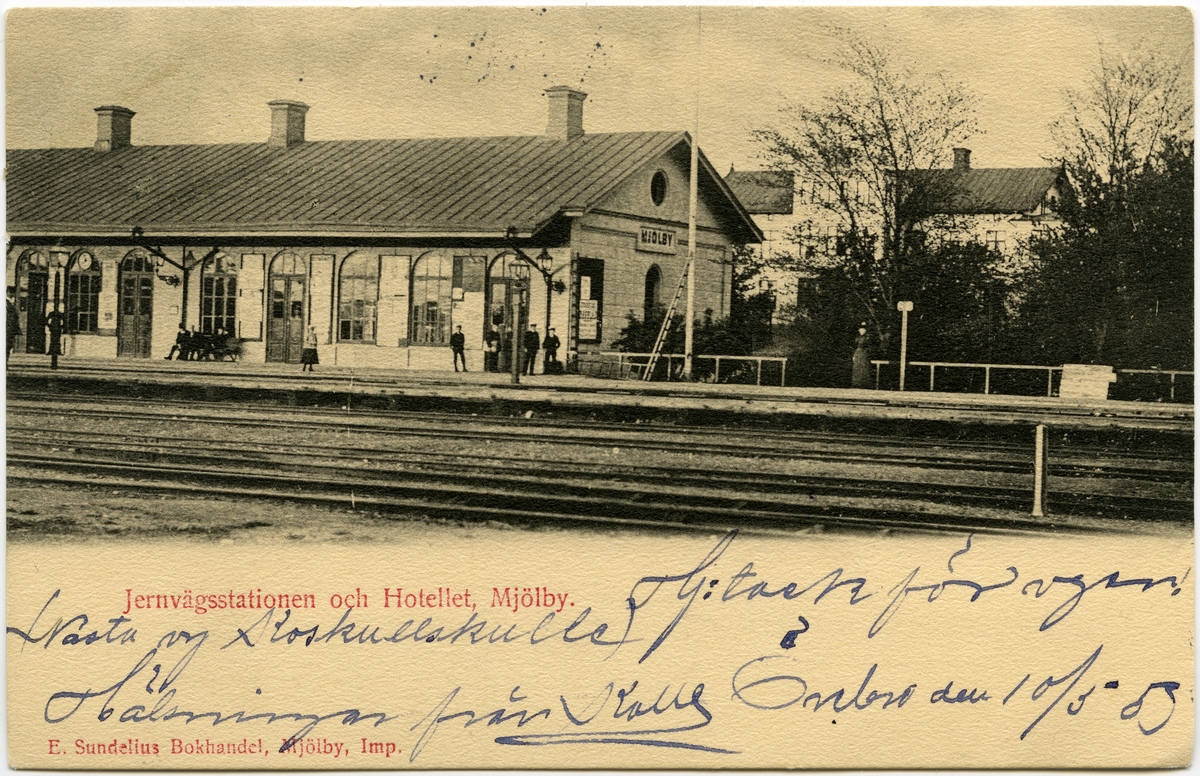 MJÖLBY
Jernvägsstationen och Hotellet, Mjölby.
Hj: tack för vyen!
(Nästa vy Koskullskulle)
Hälsningar från Kalle Örebro den 10/5 03
E. Sundelius Bokhandel, Mjölby, Imp.